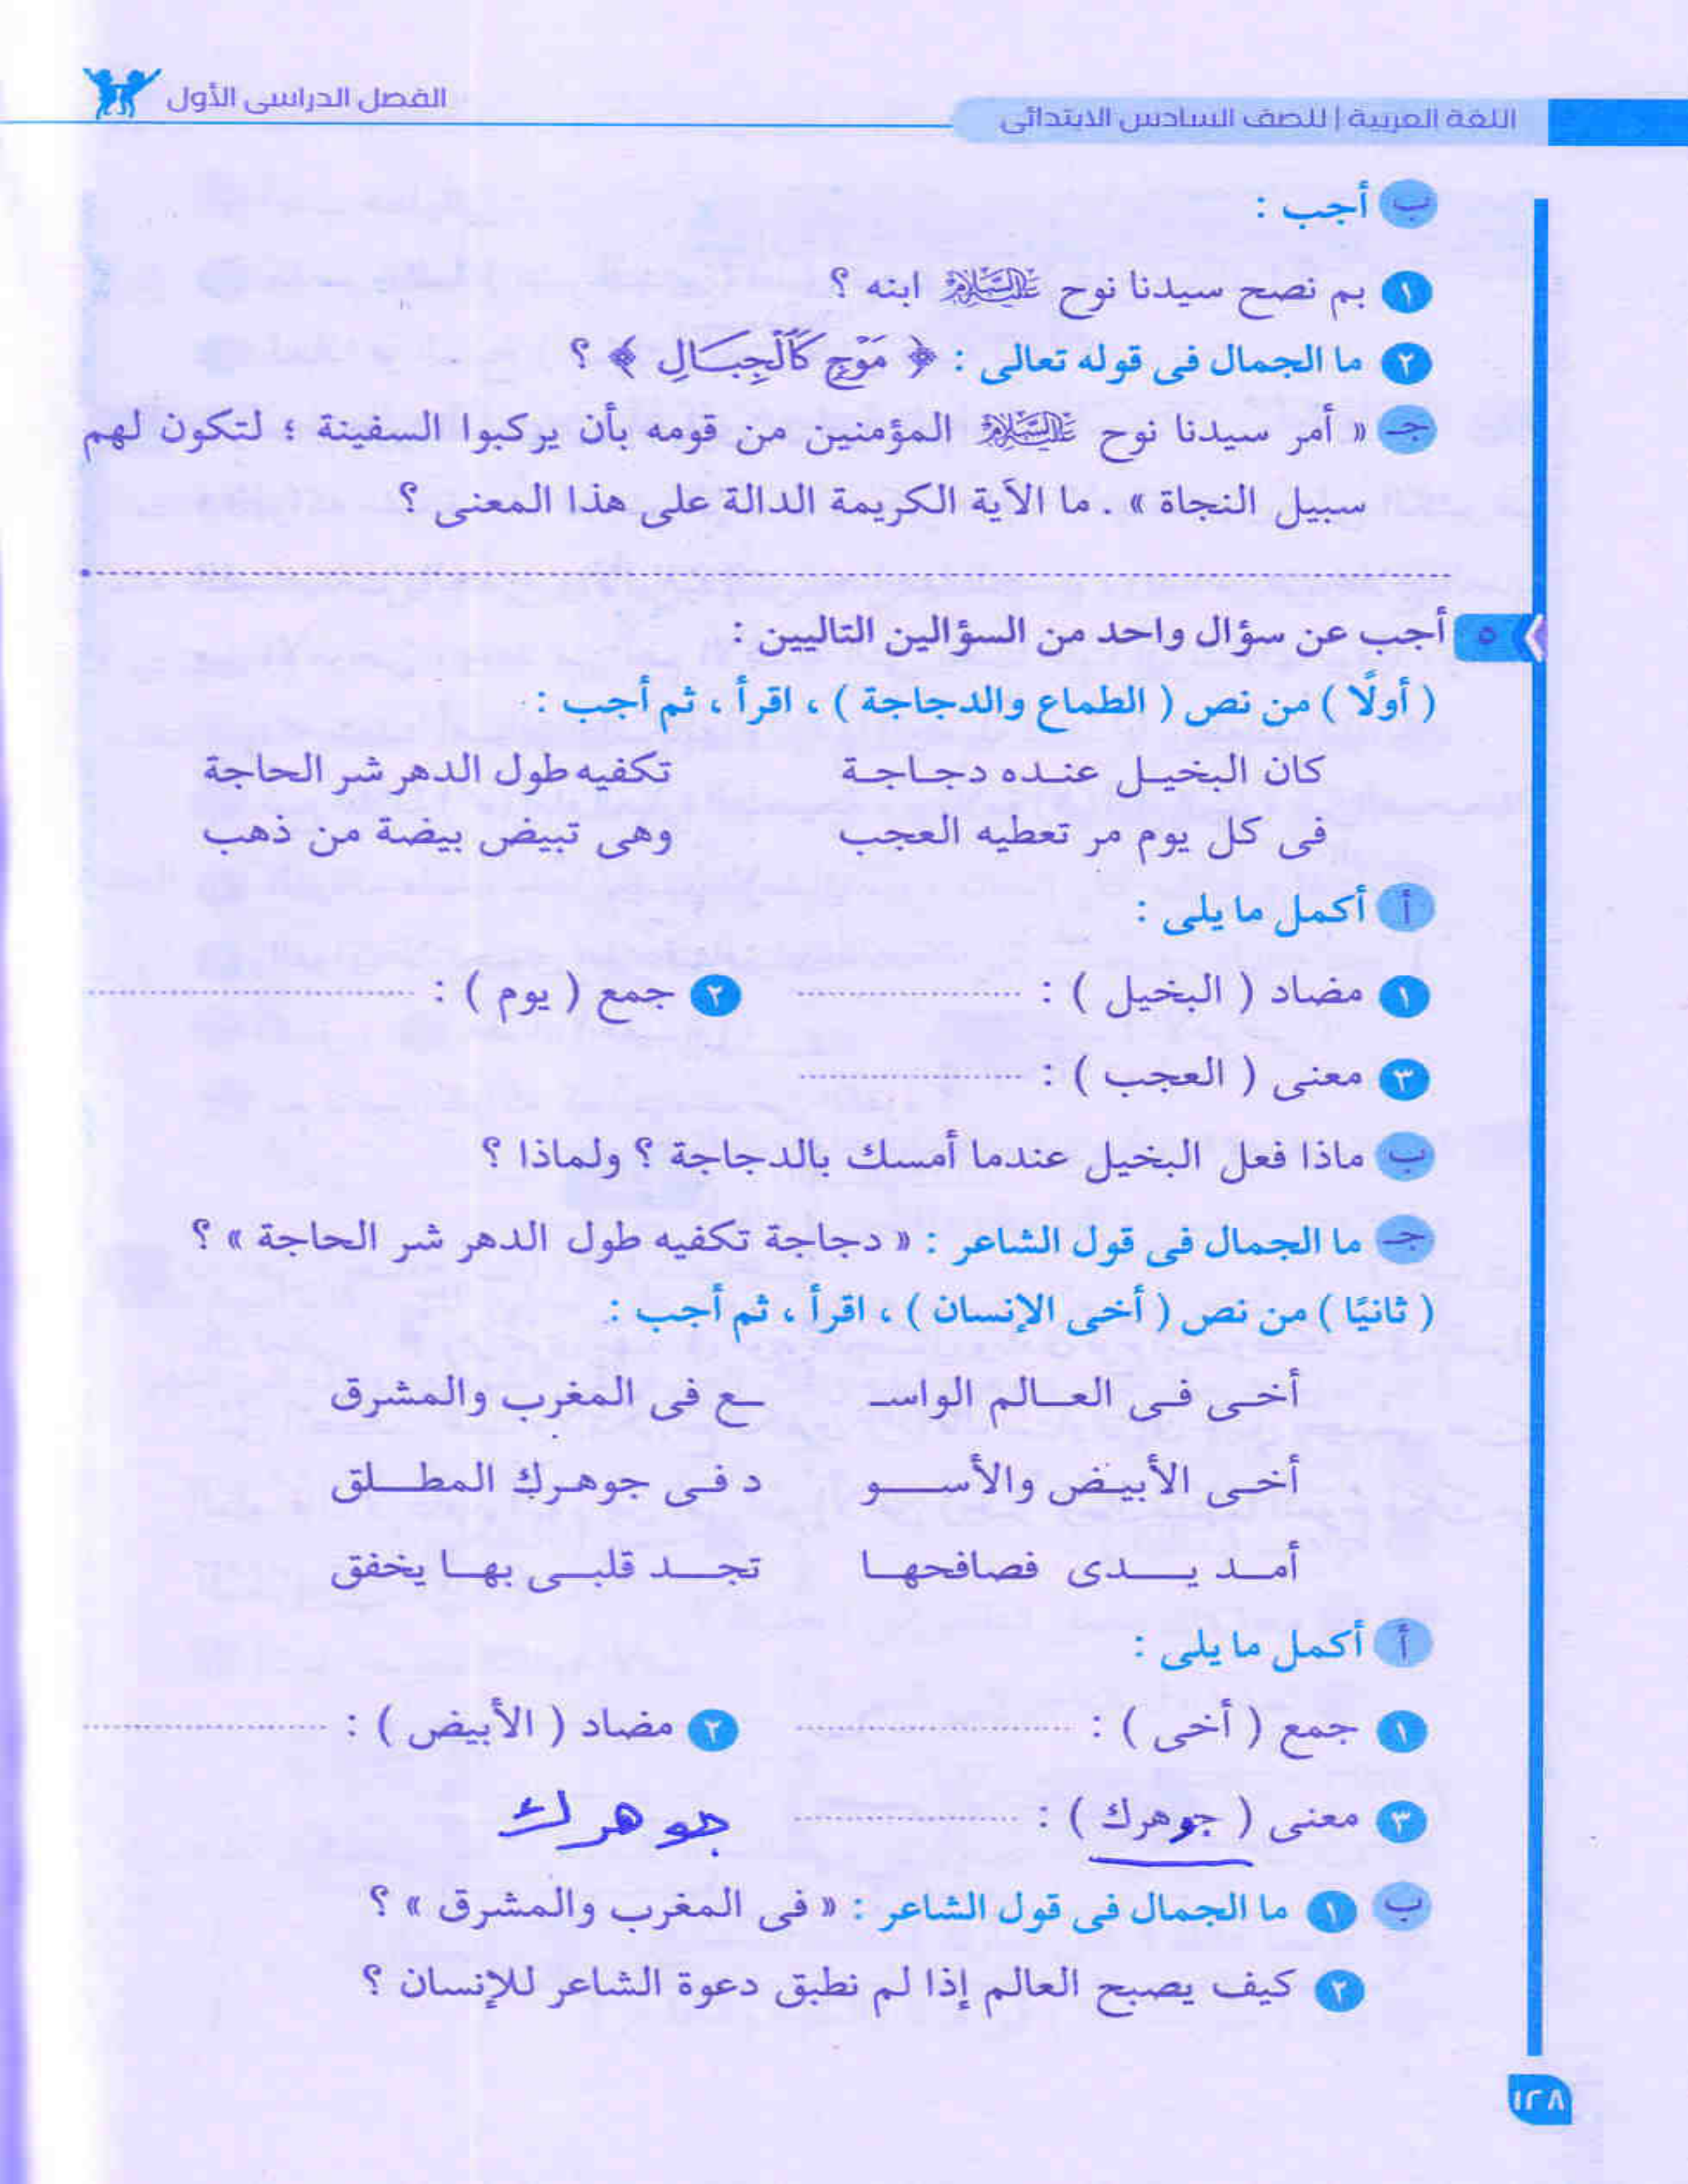 اللغة العربية | للصف السادس الابتدائى
الفصل الدراسى الأول
ب أجب :
١ بم نصح سيدنا نوح عليه السلام ابنه ؟
٢ ما الجمال فى قوله تعالى : ﴿ مَوْجٍ كَالْجِبَالِ ﴾ ؟
جـ « أمر سيدنا نوح عليه السلام المؤمنين من قومه بأن يركبوا السفينة ؛ لتكون لهم
سبيل النجاة » . ما الآية الكريمة الدالة على هذا المعنى ؟
٥ أجب عن سؤال واحد من السؤالين التاليين :
( أولًا ) من نص ( الطماع والدجاجة ) ، اقرأ ، ثم أجب :
كان البخيـل عنـده دجـاجـة تكفيه طول الدهر شر الحاجة
فى كل يوم مر تعطيه العجب وهى تبيض بيضة من ذهب
أ أكمل ما يلى :
١ مضاد ( البخيل ) : ........................ ٢ جمع ( يوم ) : ........................
٣ معنى ( العجب ) : ........................
ب ماذا فعل البخيل عندما أمسك بالدجاجة ؟ ولماذا ؟
جـ ما الجمال فى قول الشاعر : « دجاجة تكفيه طول الدهر شر الحاجة » ؟
( ثانيًا ) من نص ( أخى الإنسان ) ، اقرأ ، ثم أجب :
أخـى فـى العـالم الواسـ ـع فى المغرب والمشرق
أخـى الأبيـض والأسـو د فـى جوهـرك المطـلق
أمـد يـدى فصافحهـا تجـد قلبـى بهـا يخفق
أ أكمل ما يلى :
١ جمع ( أخى ) : ........................ ٢ مضاد ( الأبيض ) : ........................
٣ معنى ( جوهرك ) : ........................ جوهرك
ب ١ ما الجمال فى قول الشاعر : « فى المغرب والمشرق » ؟
٢ كيف يصبح العالم إذا لم نطبق دعوة الشاعر للإنسان ؟
١٢٨